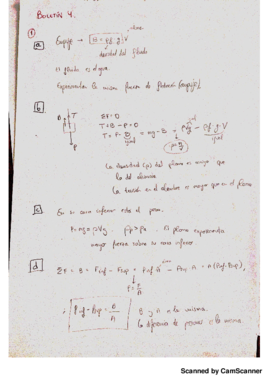 BOLETÍN 4.
①
a Empuje → B = ρf · g · V
densidad del fluido
El fluido es agua.
Experimentan la misma fuerza de flotación (empuje).
b B T
ΣF=0
T+B-P=0
T = P-B = mg-B =
P
La densidad (ρ) del plomo es mayor que
la del aluminio
La tensión en el es mayor que en el plomo
c En la cara inferior está el peso.
El plomo experimenta
mayor fuerza sobre su cara inferior.
d ΣF = B = Finf - Fsup =
P = F/A
Pinf - Psup = B/A
B y A es la misma.
la diferencia de presiones es la misma.
Scanned by CamScanner